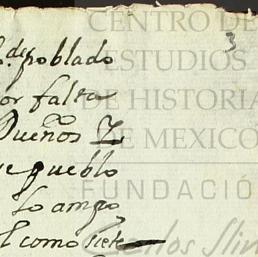 CENTRO DE
ESTUDIOS
DE HISTORIA
DE MEXICO
FUNDACIÓN
Carlos Slim
3
de poblado
or falta
Dueños
ue pueblo
lo
como siete